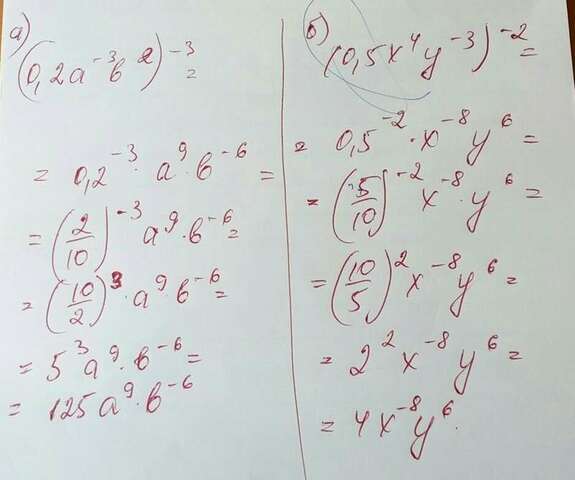 а)
(0,2a⁻³b²)⁻³ =
= 0,2⁻³ · a⁹ · b⁻⁶ =
= (2/10)⁻³ a⁹ · b⁻⁶ =
= (10/2)³ · a⁹ b⁻⁶ =
= 5³ a⁹ · b⁻⁶ =
= 125 a⁹ · b⁻⁶
б)
(0,5x⁴y⁻³)⁻² =
= 0,5⁻² · x⁻⁸ y⁶ =
= (5/10)⁻² x⁻⁸ · y⁶ =
= (10/5)² x⁻⁸ y⁶ =
= 2² x⁻⁸ y⁶ =
= 4x⁻⁸ y⁶.